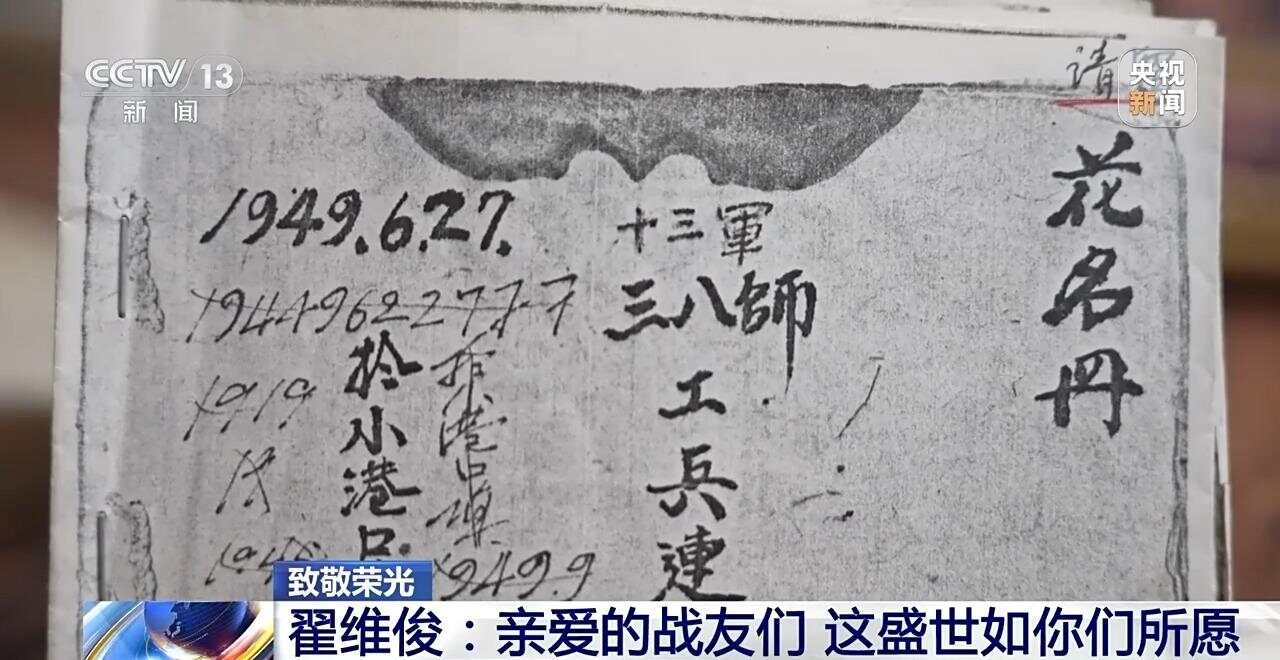 CCTV 13
新闻
央视
新闻
请
花名册
十三軍
三八師
工兵連
1949.6.27.
拎小港口
1949.9
致敬荣光
翟维俊：亲爱的战友们 这盛世如你们所愿